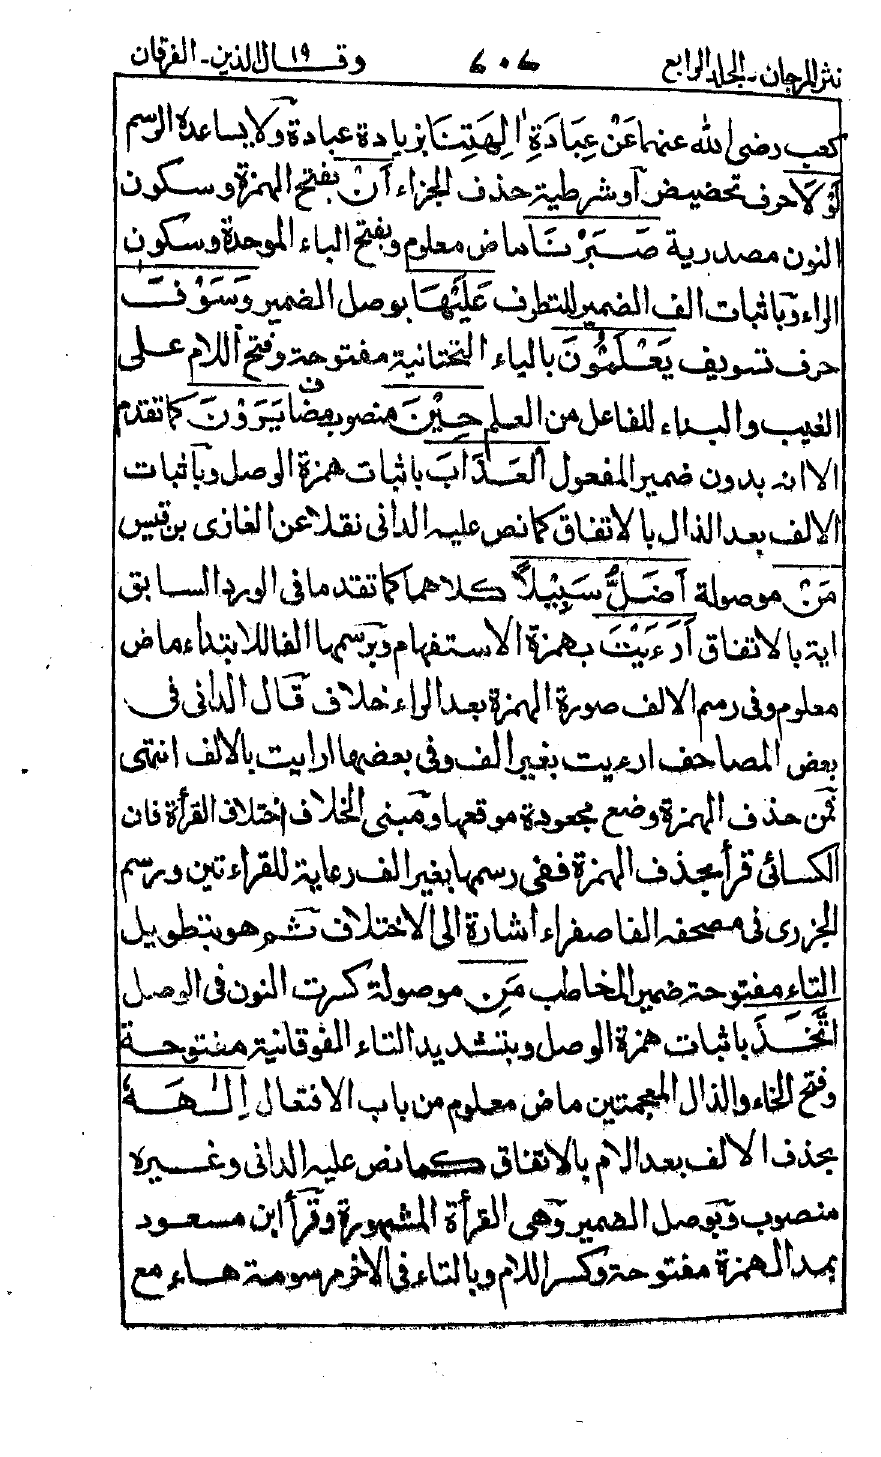 نثر المرجان - الجلد الرابع ٦٠٦ وقال الذين ١٩ - الفرقان
كعب رضى الله عنهما عَنْ عِبَادَةِ اٰلِهَتِنَا بزيادة عبادة ولا يساعده الرسم
لَوْلَا حرف تحضيض أو شرطية حذف الجزاء أَنْ بفتح الهمزة وسكون
النون مصدرية صَبَرْنَا ماض معلوم وبفتح الباء الموحدة وسكون
الراء وباثبات الف الضمير للتطرف عَلَيْهَا بوصل الضمير وَسَوْفَ
حرف تسويف يَعْلَمُوْنَ بالياء التحتانية مفتوحة وفتح اللام على
الغيب والبناء للفاعل من العلم حِيْنَ منصوب مضاف يَرَوْنَ كما تقدم
الا انه بدون ضمير المفعول الْعَذَابَ باثبات همزة الوصل وباثبات
الالف بعد الذال بالاتفاق كما نص عليه الدانى نقلا عن الغازى بن قيس
مَنْ موصولة أَضَلُّ سَبِيْلًا كلاهما كما تقدما فى الورد السابق
اية بالاتفاق أَرَءَيْتَ بهمزة الاستفهام وبرسمها الفا للابتداء ماض
معلوم وفى رسم الالف صورة الهمزة بعد الراء خلاف قال الدانى فى
بعض المصاحف ارءيت بغير الف وفى بعضها ارايت بالالف انتهى
فمن حذف الهمزة وضع مجعودة موقعها ومبنى الخلاف اختلاف القرأة فان
الكسائى قرأ بحذف الهمزة ففى رسمها بغير الف رعاية للقراءتين ورسم
الجزرى فى مصحفه الفا صفراء اشارة الى الاختلاف ثم هو بتطويل
التاء مفتوحة ضمير المخاطب مَنِ موصولة كسرت النون فى الوصل
اتَّخَذَ باثبات همزة الوصل وبتشديد التاء الفوقانية مفتوحة
وفتح الخاء والذال المعجمتين ماض معلوم من باب الافتعال اِلٰهَهٗ
بحذف الالف بعد الام بالاتفاق كما نص عليه الدانى وغيره
منصوب وبوصل الضمير وهى القرأة المشهورة وقرأ ابن مسعود
بمد الهمزة مفتوحة وكسر اللام وبالتاء فى الاخر مرسومة هاء مع